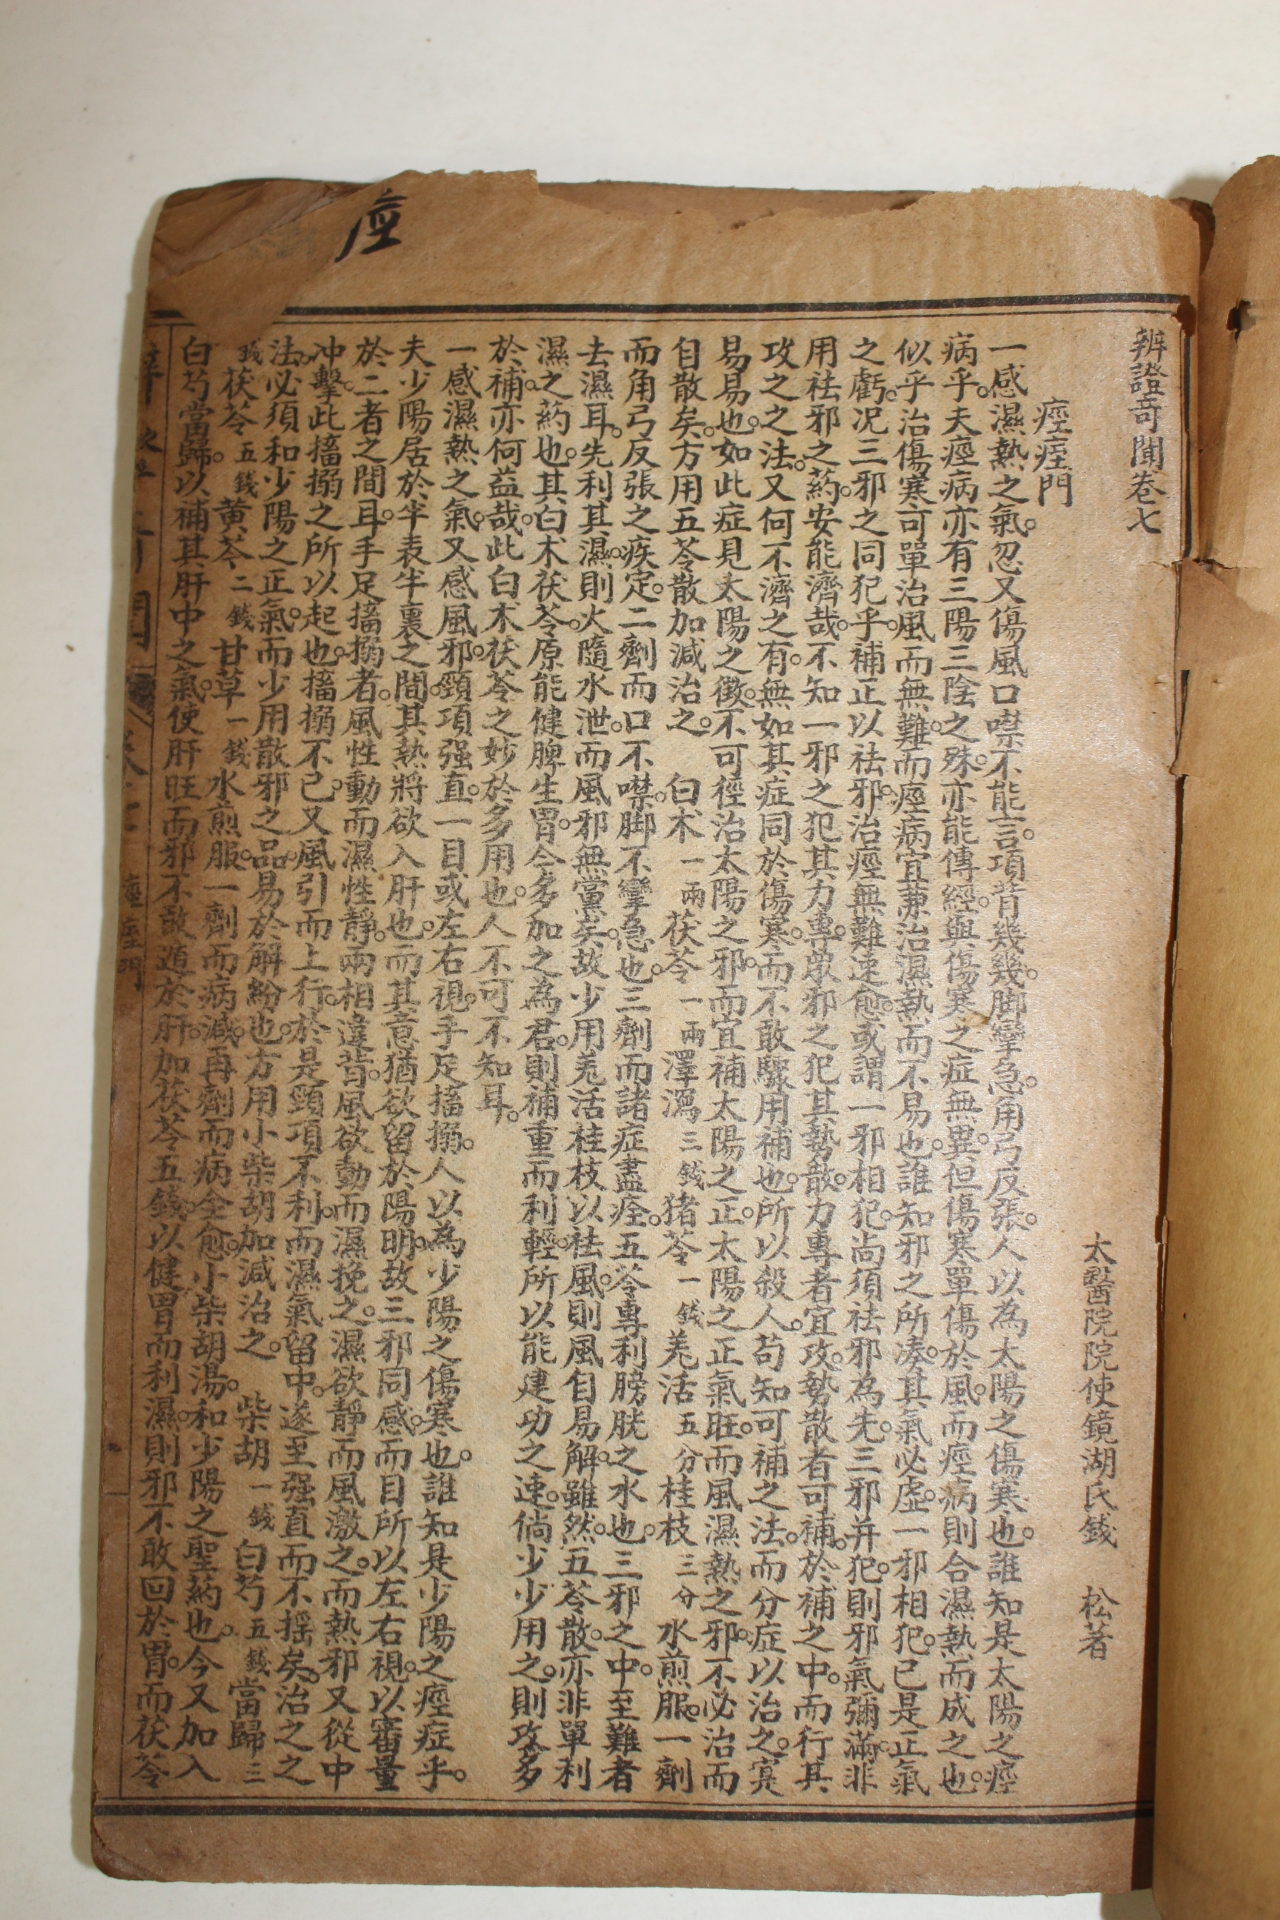 痙
辨證奇聞卷七
太醫院院使鏡湖氏錢 松著
痙痓門
一感濕熱之氣忽又傷風口噤不能言項背幾幾脚攣急角弓反張人以為太陽之傷寒也誰知是太陽之痙
病乎夫痙病亦有三陽三陰之殊亦能傳經與傷寒之症無異但傷寒單傷於風而痙病則合濕熱而成之也
似乎治傷寒可單治風而無難而痙病宜兼治濕熱而不易也誰知邪之所湊其氣必虛一邪相犯已是正氣
之虧况三邪之同犯乎補正以祛邪治痙無難速愈或謂一邪相犯尚須祛邪為先三邪并犯則邪氣彌滿非
用祛邪之葯安能濟哉不知一邪之犯其力專衆邪之犯其勢散力專者宜攻勢散者可補於補之中而行其
攻之之法又何不濟之有無如其症同於傷寒而不敢驟用補也所以殺人苟知可補之法而分症以治之寔
易易也如此症見太陽之徵不可徑治太陽之邪而宜補太陽之正太陽之正氣旺而風濕熱之邪不必治而
自散矣方用五苓散加減治之 白术一兩茯苓一兩澤瀉三錢猪苓一錢羌活五分桂枝三分水煎服一劑
而角弓反張之疾定二劑而口不噤脚不攣急也三劑而諸症盡痊五苓專利膀胱之水也三邪之中至難者
去濕耳先利其濕則火隨水泄而風邪無黨矣故少用羌活桂枝以祛風則風自易解雖然五苓散亦非單利
濕之葯也其白术茯苓原能健脾生胃今多加之為君則補重而利輕所以能建功之速倘少少用之則攻多
於補亦何益哉此白术茯苓之妙於多用也人不可不知耳
一感濕熱之氣又感風邪頸項强直一目或左右視手足搐搦人以為少陽之傷寒也誰知是少陽之痙症乎
夫少陽居於半表半裏之間其熱將欲入肝也而其意猶欲留於陽明故三邪同感而目所以左右視以審量
於二者之間耳手足搐搦者風性動而濕性靜兩相違背風欲動而濕挽之濕欲靜而風激之而熱邪又從中
冲擊此搐搦之所以起也搐搦不已又風引而上行於是頸項不利而濕氣留中遂至强直而不揺矣治之之
法必須和少陽之正氣而少用散邪之品易於解紛也方用小柴胡加減治之 柴胡一錢白芍五錢當歸三
錢茯苓五錢黄芩二錢甘草一錢水煎服一劑而病減再劑而病全愈小柴胡湯和少陽之聖葯也今又加入
白芍當歸以補其肝中之氣使肝旺而邪不敢遁於肝加茯苓五錢以健胃而利濕則邪不敢回於胃而茯苓
痙痓門